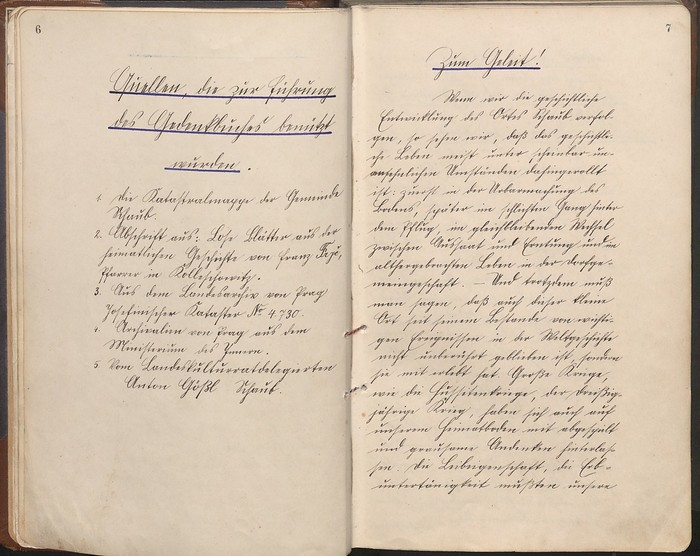 6
Quellen, die zur Führung
des Gedenkbuches benützt
wurden.
1. Die Katastralmappe der Gemeinde
Schaub.
2. Abschrift aus: Lose Blätter aus der
heimatlichen Geschichte von Franz
Pfarrer in Kolleschowitz.
3. Aus dem Landesarchiv von Prag
Josefinischer Kataster No 4.730.
4. Archivalien von Prag aus dem
Ministerium des Innern.
5. Vom Landeskulturratdelegierten
Anton Gößl Schaub.
7
Zum Geleit!
Wenn wir die geschichtliche
Entwicklung des Ortes Schaub verfol-
gen, so sehen wir, daß das geschichtli-
che Leben meist unter scheinbar un-
ansehnlichen Umständen dahingerollt
ist: zuerst in der Urbarmachung des
Bodens, später im schlichten Gang hinter
dem Pflug, im gleichbleibenden Wechsel
zwischen Aussaat und Erntung und im
althergebrachten Leben in der Dorfge-
meingeschaft. — Und trotzdem muß
man sagen, daß auch dieser kleine
Ort seit seinem Bestande von wichti-
gen Ereignissen in der Weltgeschichte
nicht unberührt geblieben ist, sondern
sie mit erlebt hat. Große Kriege,
wie die Hussitenkriege, der Dreißig-
jährige Krieg, haben sich auch auf
unserem Heimatboden mit abgespielt
und grausame Andenken hinterlas-
sen. Die Leibeigenschaft, die Erb-
untertänigkeit mußten unsere